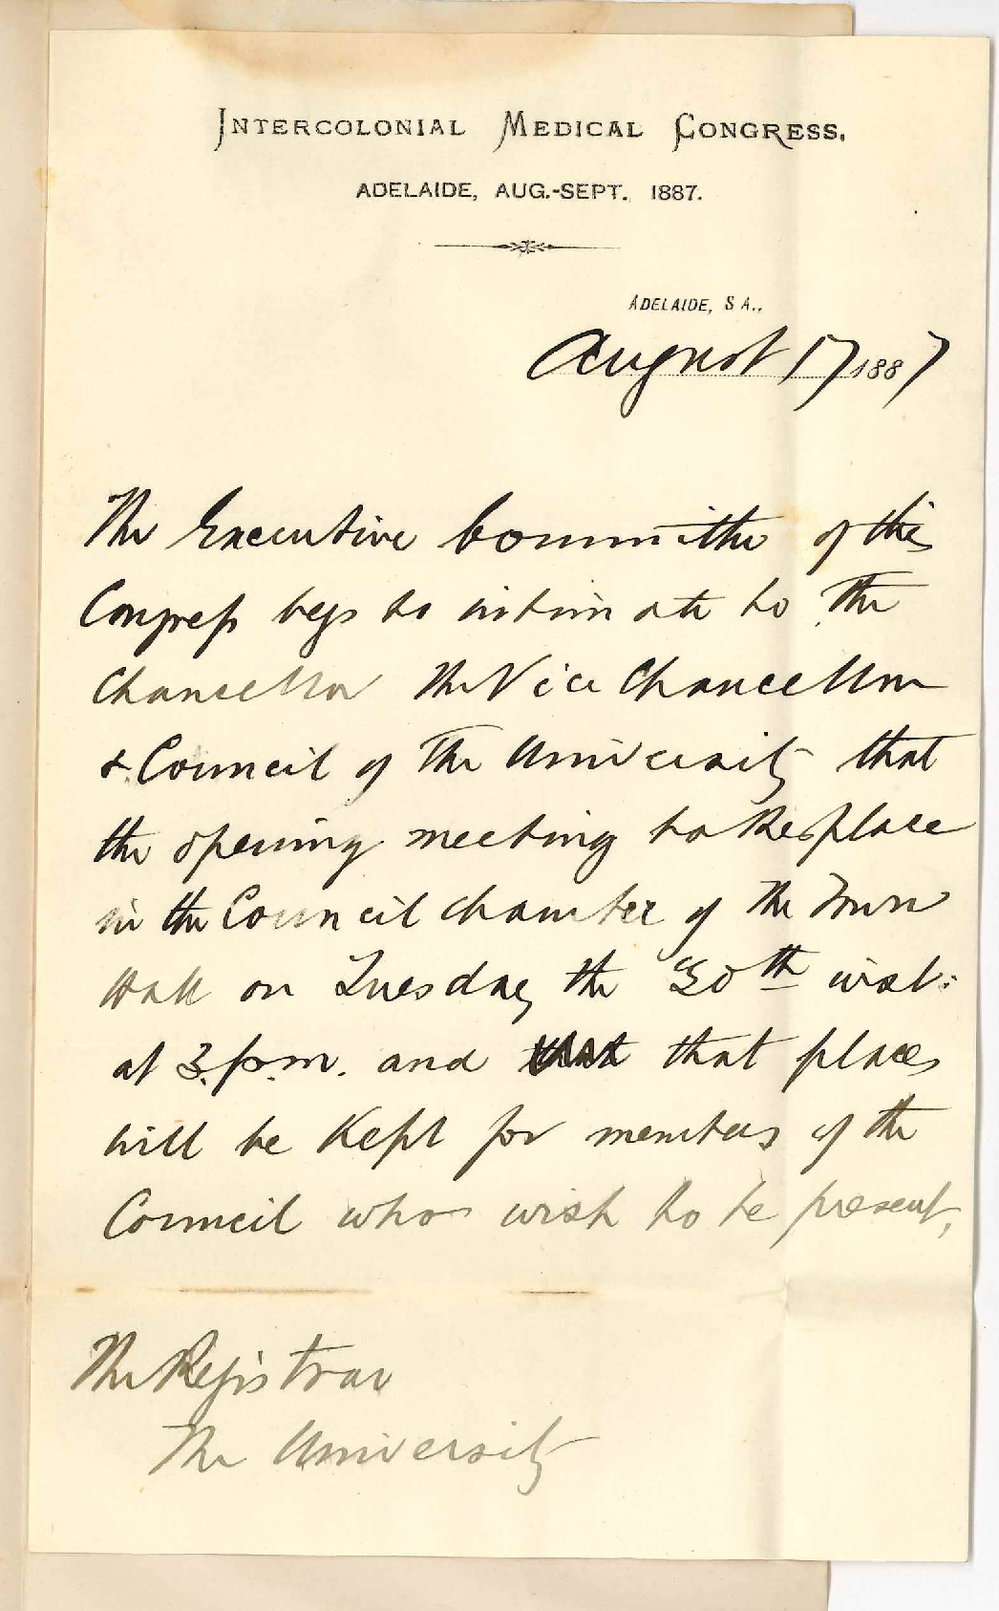 INTERCOLONIAL MEDICAL CONGRESS.
ADELAIDE, AUG.-SEPT. 1887.
ADELAIDE, S A.,
August 17 1887
The Executive Committee of this
Congress begs to intimate to The
Chancellor the Vice Chancellor
& Council of The University that
the opening meeting takes place
in the Council chamber of the Town
Hall on Tuesday the 30th inst:
at 3.p.m. and that that places
will be kept for members of the
Council who wish to be present,
The Registrar
The University